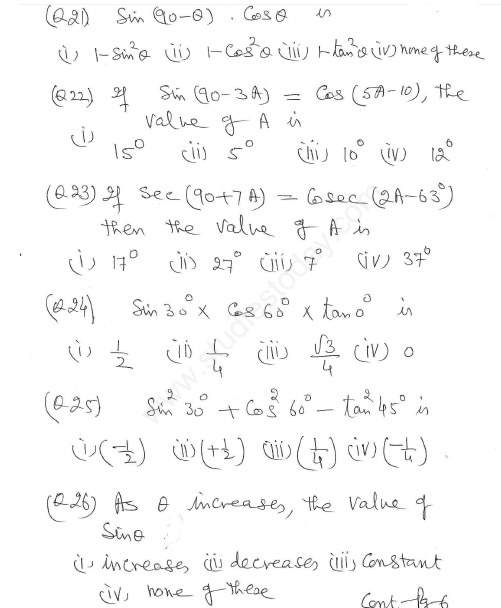 (Q21) Sin (90-θ) . Cosθ is
(i) 1-Sin²θ (ii) 1-Cos²θ (iii) 1-tan²θ (iv) none of these
(Q22) If Sin (90-3A) = Cos (5A-10), the
value of A is
(i) 15° (ii) 5° (iii) 10° (iv) 12°
(Q23) If Sec (90+7A) = Cosec (2A-63°)
then the value of A is
(i) 17° (ii) 27° (iii) 7° (iv) 37°
(Q24) Sin 30° x Cos 60° x tan 0° is
(i) 1/2 (ii) 1/4 (iii) √3/4 (iv) 0
(Q25) Sin² 30° + Cos² 60° - tan² 45° is
(i) (-1/2) (ii) (+1/2) (iii) (1/4) (iv) (-1/4)
(Q26) As θ increases, the value of
Sinθ
(i) increases (ii) decreases (iii) Constant
(iv) none of these
Cont-Pg-6
www.studiestoday.com